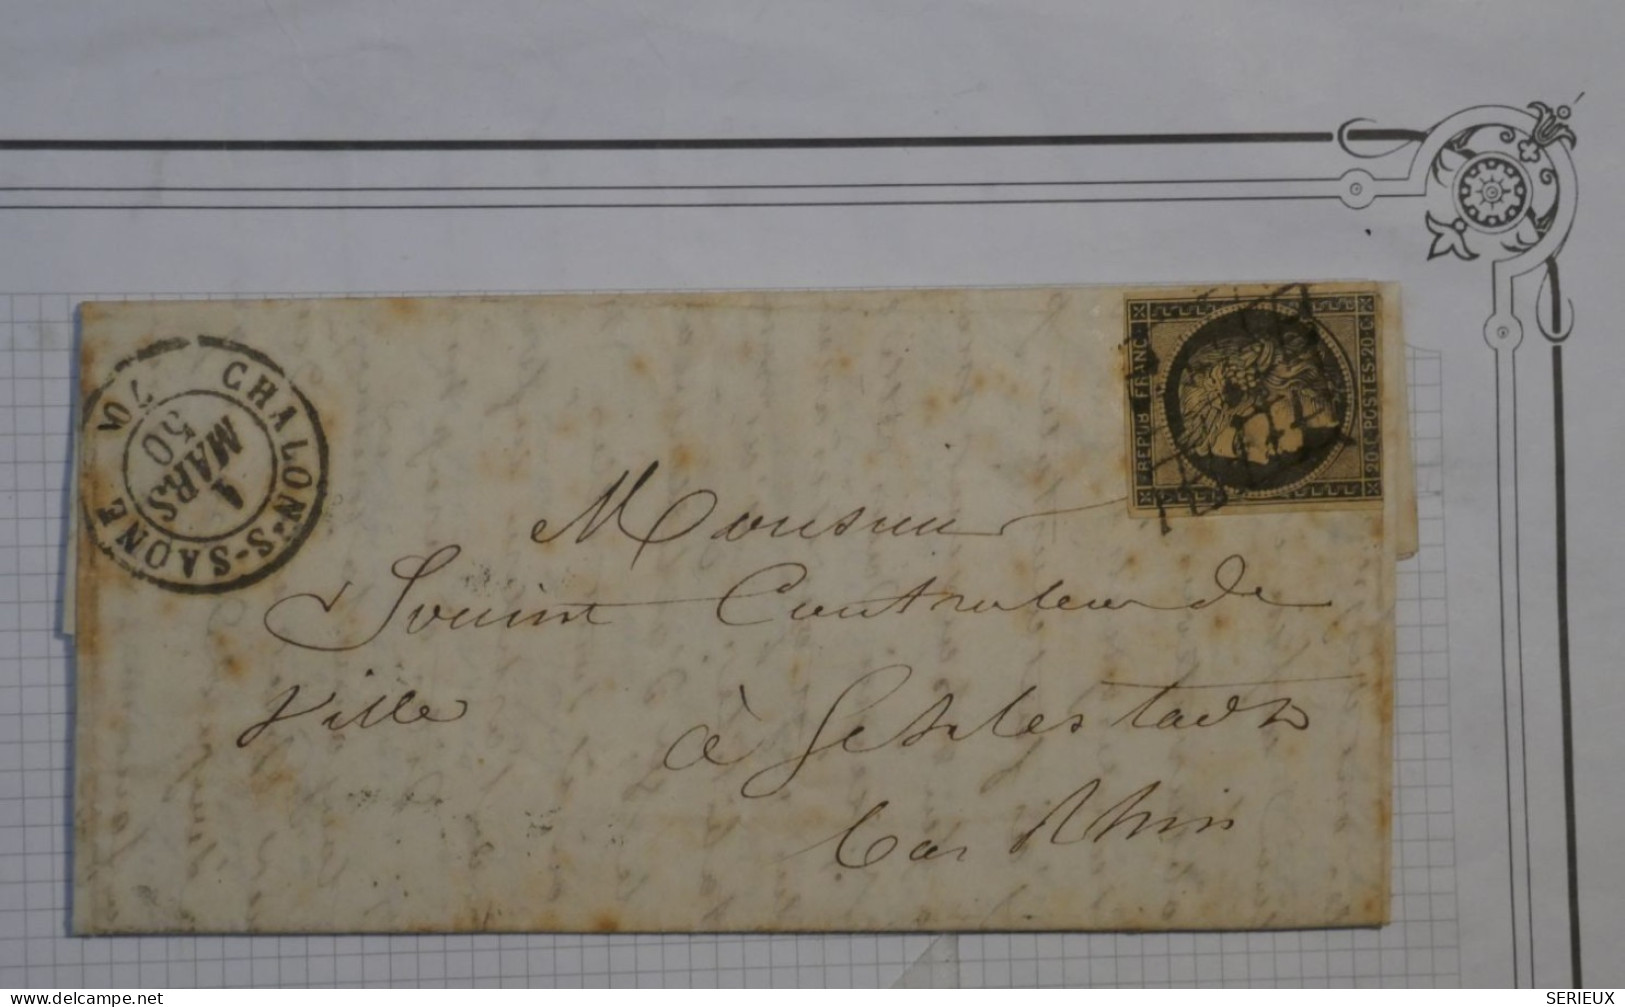 CHALON-S-SAONE
70
1
MARS
50
REPUB FRANC
20·C·POSTES·20·C
Monsieur
Contrôleur de
Ville
à Schlestadt
bas Rhin
delcampe.net
SERIEUX